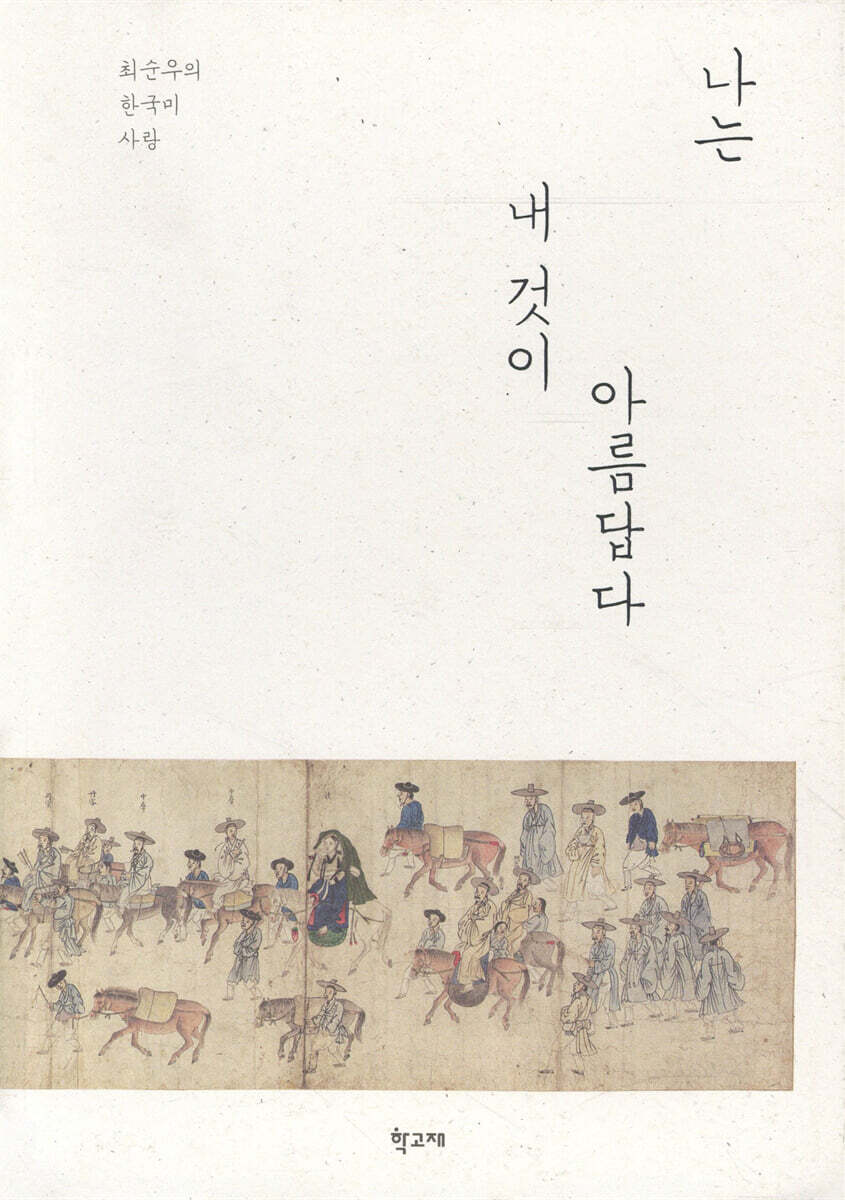 최순우의
한국미
사랑
나는
내 것이
아름답다
학고재